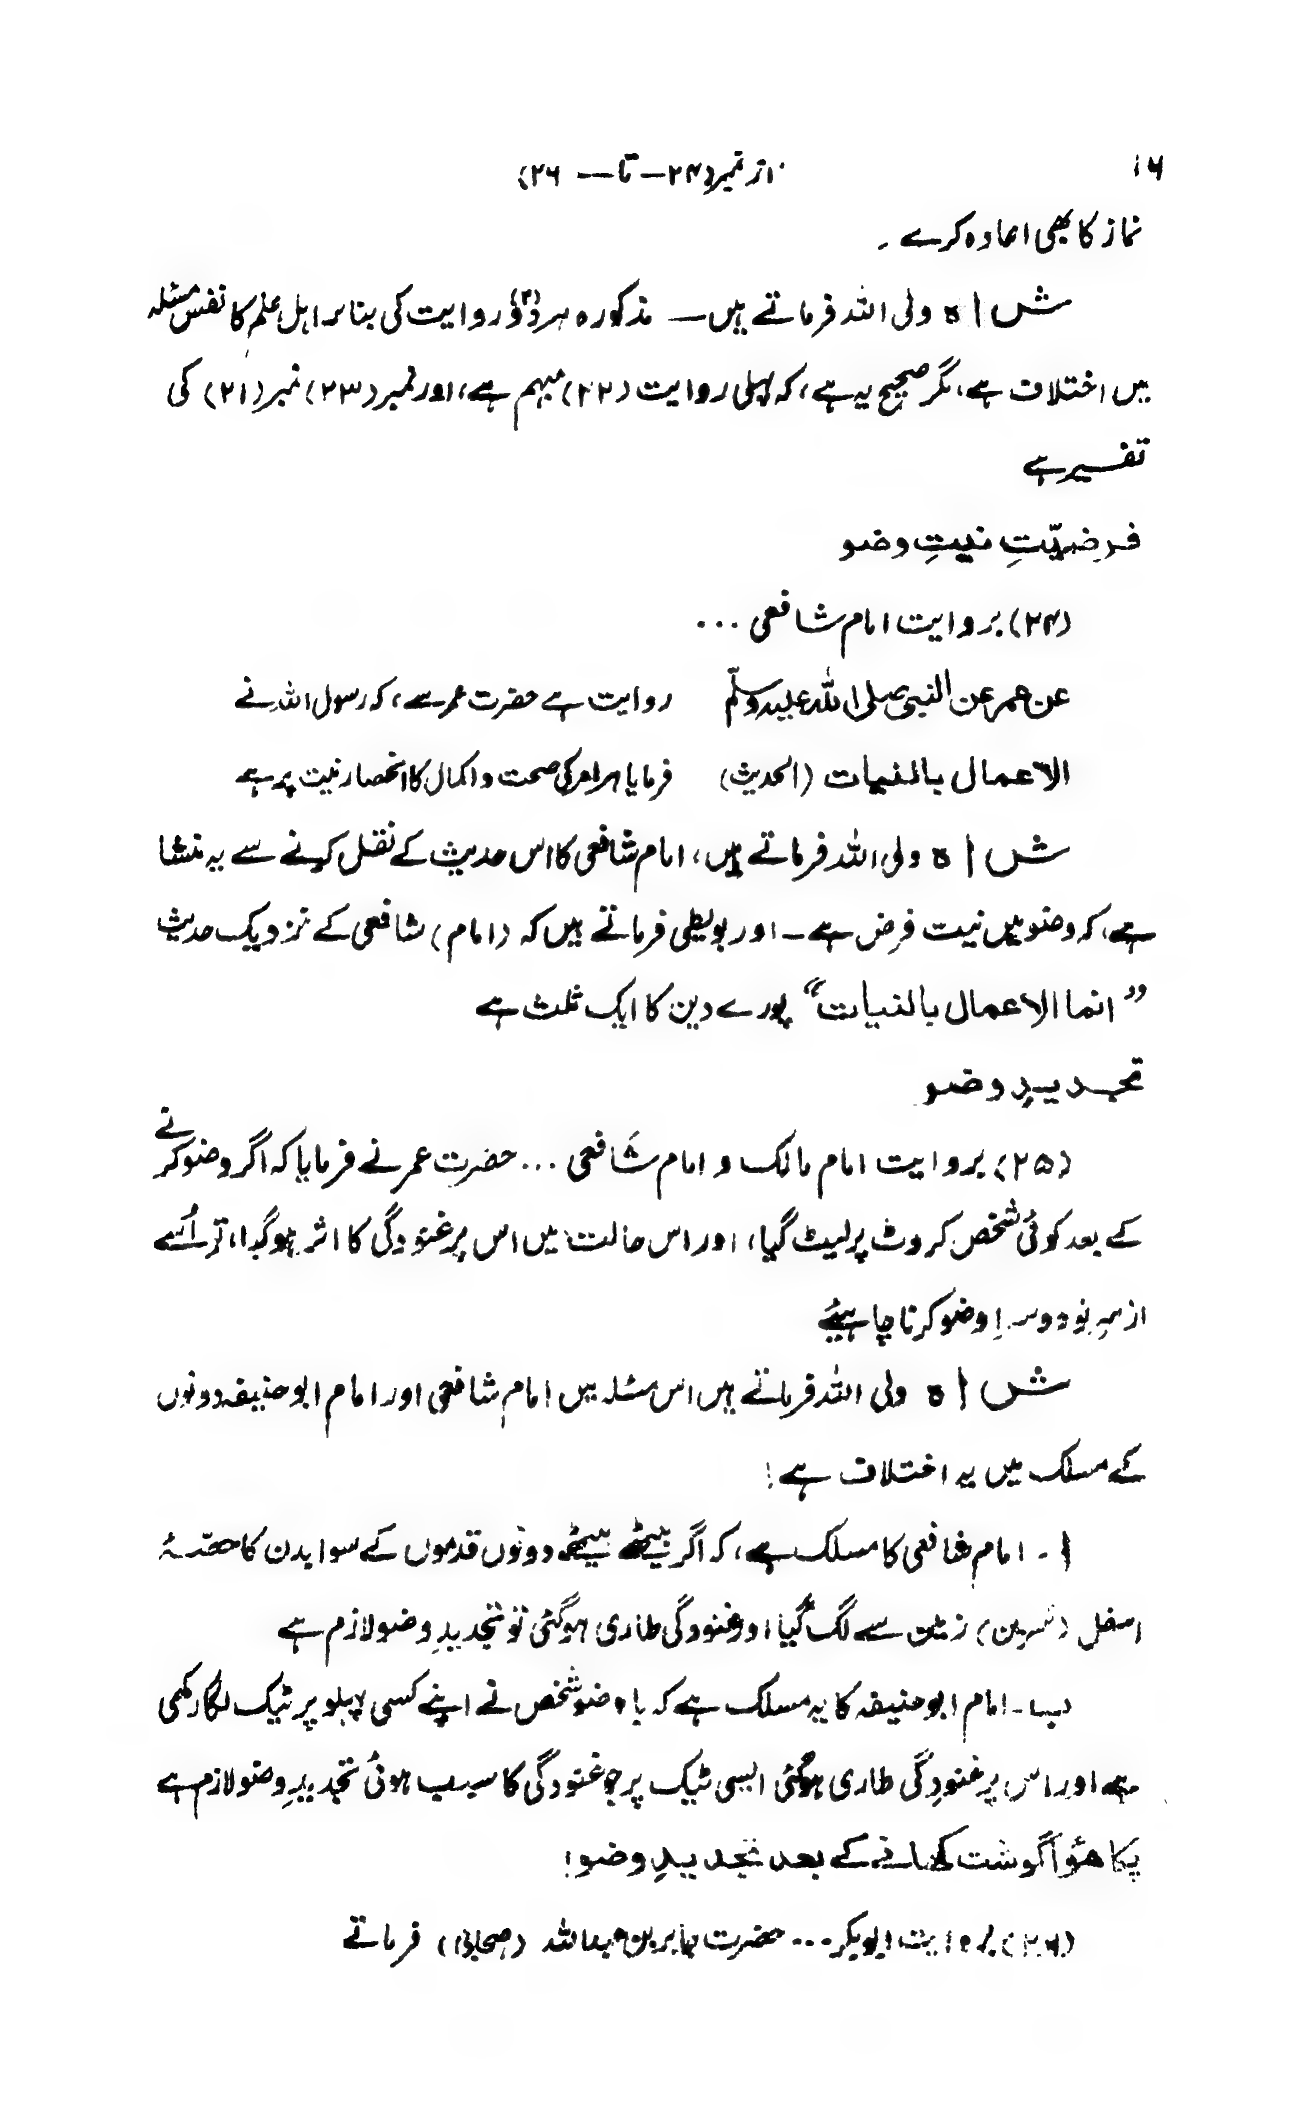 ۱۶
از نمبر (۲۴ — تا — ۲۶)
نماز کا بھی اعادہ کرے ۔
شاہ ولی اللہ فرماتے ہیں — مذکورہ ہر دو (۲) روایت کی بنا پر اہل علم کا نفس مسئلہ
میں اختلاف ہے، مگر صحیح یہ ہے، کہ پہلی روایت (۲۲) مبہم ہے، اور نمبر (۲۳) نمبر (۲۱) کی
تفسیر ہے
فرضیّتِ نیتِ وضو
(۲۴) بروایت امام شافعی ...
عن عمر عن النبی صلی اللہ علیہ وسلّم روایت ہے حضرت عمر سے، کہ رسول اللہ نے
الاعمال بالنیات (الحدیث) فرمایا ہر امر کی صحت و اکمال کا انحصار نیت پر ہے
شاہ ولی اللہ فرماتے ہیں، امام شافعی کا اس حدیث کے نقل کرنے سے یہ منشا
ہے، کہ وضو میں نیت فرض ہے ۔ اور بویطی فرماتے ہیں کہ (امام) شافعی کے نزدیک حدیث
”انما الاعمال بالنیات“ پورے دین کا ایک ثلث ہے
تجدیدِ وضو
(۲۵) بروایت امام مالک و امام شافعی ... حضرت عمر نے فرمایا کہ اگر وضو کرنے
کے بعد کوئی شخص کروٹ پر لیٹ گیا، اور اس حالت میں اس پر غنودگی کا اثر ہو گیا، تو اُسے
از سرِ نو دوسرا وضو کرنا چاہیئے
شاہ ولی اللہ فرماتے ہیں اس مسئلہ میں امام شافعی اور امام ابو حنیفہ دونوں
کے مسلک میں یہ اختلاف ہے!
ا ۔ امام شافعی کا مسلک ہے، کہ اگر بیٹھے بیٹھے دونوں قدموں کے سوا بدن کا حصّۂ
اسفل (سرین) زمین سے لگ گیا اور غنودگی طاری ہو گئی تو تجدیدِ وضو لازم ہے
ب ۔ امام ابو حنیفہ کا یہ مسلک ہے کہ باوضو شخص نے اپنے کسی پہلو پر ٹیک لگا رکھی
ہے اور اس پر غنودگی طاری ہو گئی ایسی ٹیک پر جو غنودگی کا سبب ہوئی تجدیدِ وضو لازم ہے
پکا ھوُا گوشت کھانے کے بعد تجدیدِ وضو!
(۲۶) بروایت ابوبکر ... حضرت جابر بن عبداللہ (صحابی) فرماتے